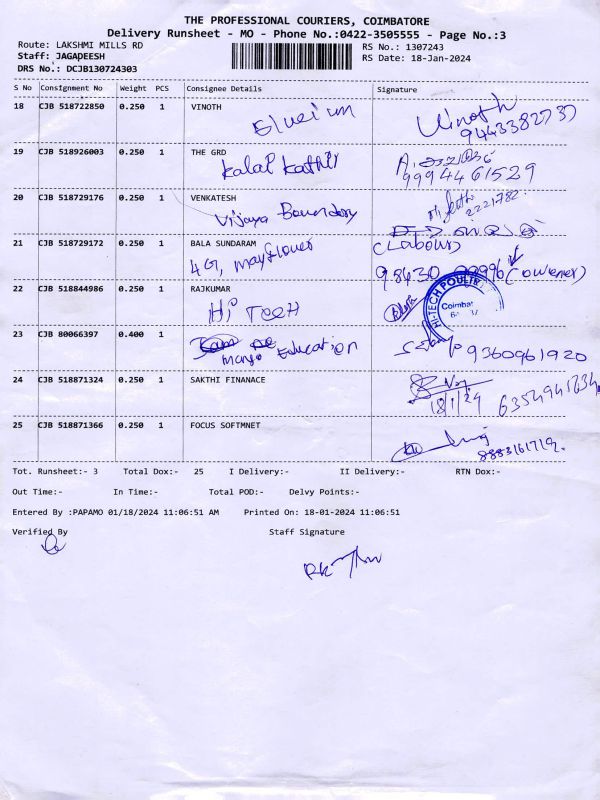 THE PROFESSIONAL COURIERS, COIMBATORE
Delivery Runsheet - MO - Phone No.:0422-3505555 - Page No.:3
Route: LAKSHMI MILLS RD RS No.: 1307243
Staff: JAGADEESH RS Date: 18-Jan-2024
DRS No.: DCJB130724303
S No Consignment No Weight PCS Consignee Details Signature
18 CJB 518722850 0.250 1 VINOTH Vinoth
9443382737
19 CJB 518926003 0.250 1 THE GRD
Kalai Kathir 9994461529
20 CJB 518729176 0.250 1 VENKATESH
Vijaya 2221782
21 CJB 518729172 0.250 1 BALA SUNDARAM (Labour)
4G, Mayflower 98430 (owener)
22 CJB 518844986 0.250 1 RAJKUMAR HI-TECH POULTR
Hi Tech Coimbat
23 CJB 80066397 0.400 1
Mango Education 9360961920
24 CJB 518871324 0.250 1 SAKTHI FINANACE
18/1/24 6354941234
25 CJB 518871366 0.250 1 FOCUS SOFTMNET
8883161719
Tot. Runsheet:- 3 Total Dox:- 25 I Delivery:- II Delivery:- RTN Dox:-
Out Time:- In Time:- Total POD:- Delvy Points:-
Entered By :PAPAMO 01/18/2024 11:06:51 AM Printed On: 18-01-2024 11:06:51
Verified By Staff Signature